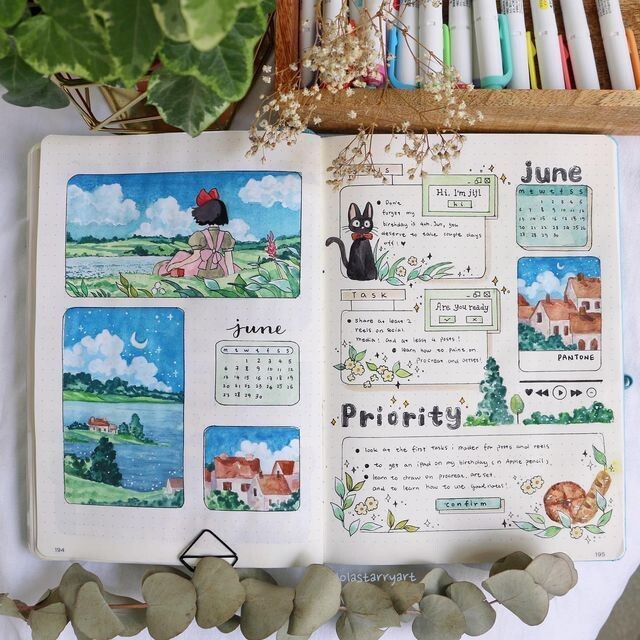 june
m t w t f s s
june
Hi, I'm jiji
hi
Don't
forget my
birthday is 4th Jun, you
deserve to take couple days
off!
m t w t f s s
Task
Are you ready
share at least 2
reels on social
media! and at least 4 posts!
learn how to paint on
Procreate and
PANTONE
Priority
look at the first tasks i
for posts and reels
to get an ipad on my birthday (n Apple pencil)
learn to draw on procreate,
and to learn how to use goodnotes!
confirm
194
195
olastarryart